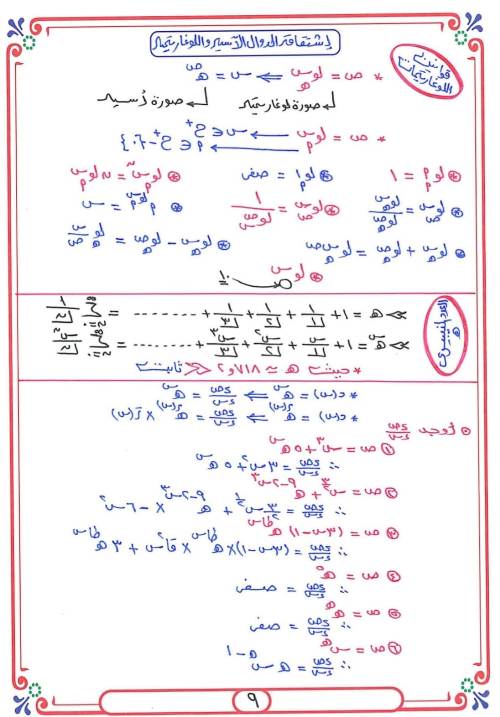 إشتقاق الدوال الأسية واللوغاريتمية
قوانين اللوغاريتمات
* ص = لو_هـ س ⇐ س = هـ^ص
صورة لوغاريتمية صورة أسية
* ص = لو_م س ← س ∈ ح⁺
← م ∈ ح⁺ - {٠، ١}
* لو_م م = ١ * لو_م ١ = صفر * لو_م س^ن = ن لو_م س
* لو_ص س = لو_هـ س / لو_هـ ص * لو_ص س = ١ / لو_س ص * م^(لو_م س) = س
* لو_هـ س + لو_هـ ص = لو_هـ س ص * لو_هـ س - لو_هـ ص = لو_هـ س/ص
* لو س
١٠
العدد النيبيري هـ
≪ هـ = ١ + ١/١ + ١/٢ + ١/٣ + ........ =
≪ هـ^س = ١ + س/١ + س²/٢ + س³/٣ + ........ =
* حيث هـ ≈ ٢٫٧١٨ ≪ ثابت
* د(س) = هـ^س ⇐ ءص/ءس = هـ^س
* د(س) = هـ^ر(س) ⇐ ءص/ءس = هـ^ر(س) × رَ(س)
* أوجد ءص/ءس
① ص = س³ + ٥ هـ^س
∴ ءص/ءس = ٣س² + ٥ هـ^س
② ص = س^(٣/٢) + هـ^(٩-٢س³)
∴ ءص/ءس = ٣/٢ س^(١/٢) + هـ^(٩-٢س³) × -٦س²
③ ص = (٣س-١) هـ^طاس
∴ ءص/ءس = (٣س-١) × هـ^طاس × قا²س + ٣ هـ^طاس
④ ص = هـ^٥
∴ ءص/ءس = صفر
⑤ ص = هـ^هـ
∴ ءص/ءس = صفر
⑥ ص = س^هـ
∴ ءص/ءس = هـ س^(هـ-١)
٩